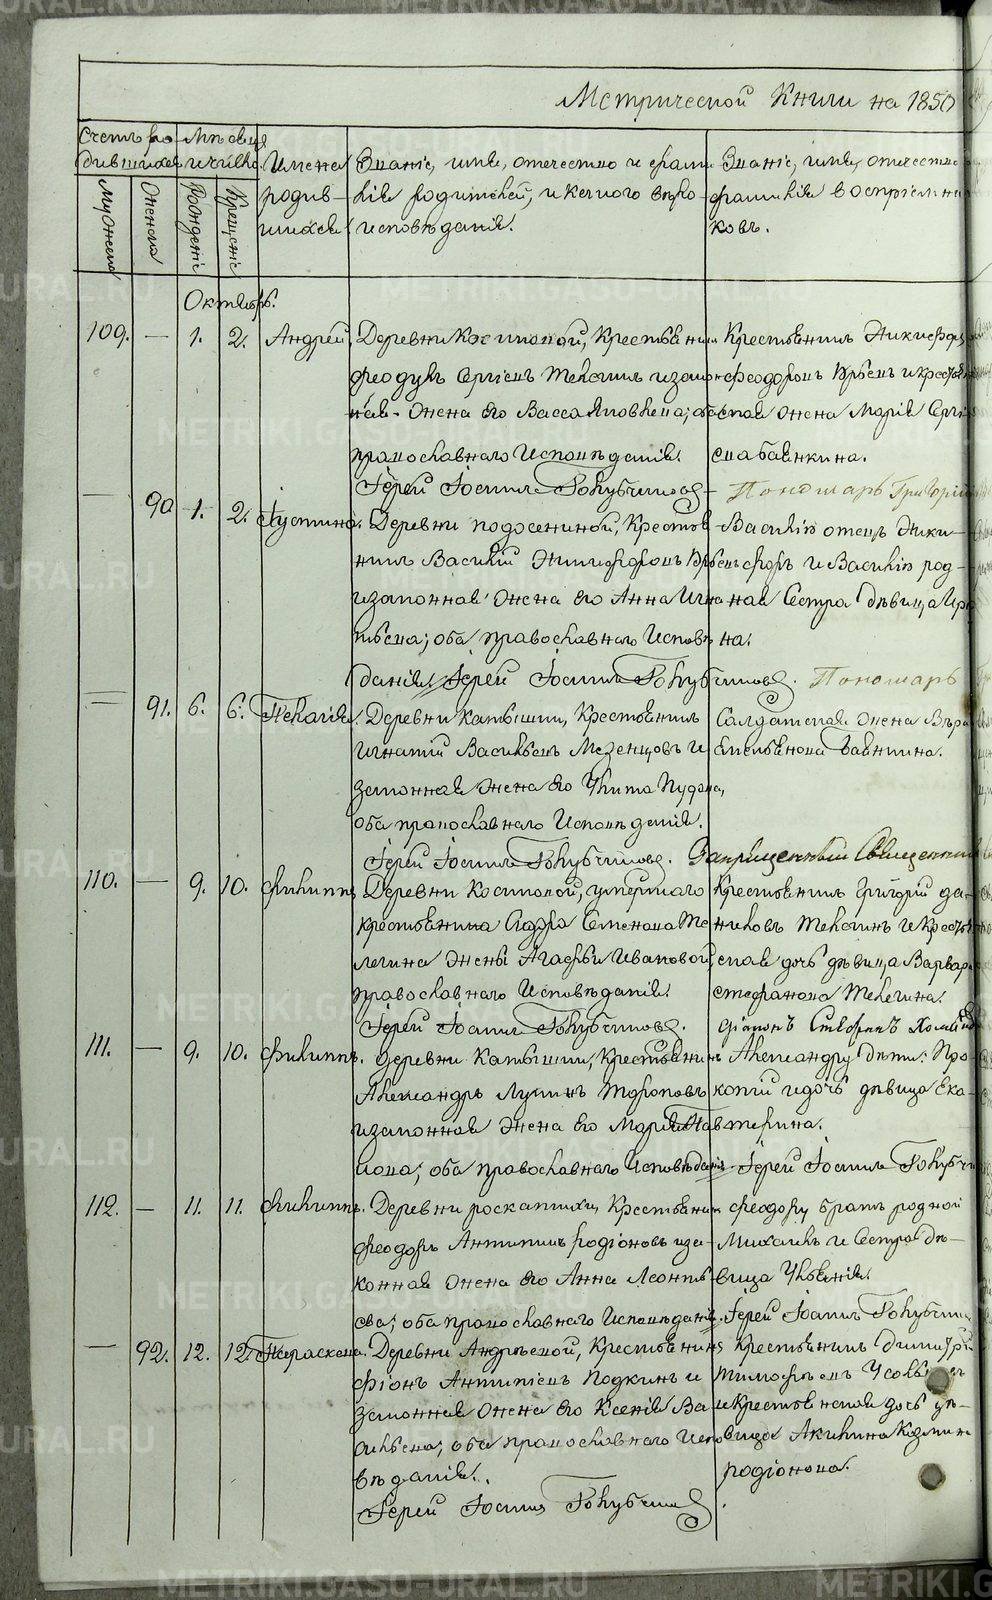 Метрической Книги на 1850
Счетъ ро-
дившихся
Мѣсяцъ
и число
Имена
родив-
шихся
Званіе, имя, отечество и фами-
лія родителей, и какого вѣро-
исповѣданія.
Званіе, имя, отечество
фамилія воспріемни
ковъ.
Мужеска
Женска
Рожденіе
Крещеніе
Октябрь.
109. — 1. 2. Андрей.
Деревни Крестьянин
Феодулъ Сергіевъ Телегинъ и закон-
ная Жена его Васса Яковлева; оба
православнаго Исповѣданія.
Іерей Іоаннъ Голубчиковъ
Крестьянинъ Никифоръ
Феодоровъ и крестья
ская жена Марія Сергі
ева бабинкина.
Пономарь Григорій
— 90 1. 2. Іустина.
Деревни подосениной, Крестья-
нинъ Василій Никифоровъ
и законная Жена его Анна Игна
тьева; оба православнаго Исповѣ
данія. Іерей Іоаннъ Голубчиковъ.
Василія отецъ Ники-
форъ и Василія род-
ная Сестра дѣвица Ири
на.
Пономарь
— 91. 6. 6. Пелагія.
Деревни Камышки, Крестьянинъ
Игнатій Васильевъ Мезенцовъ и
законная Жена его Улита Пудова,
оба православнаго Исповѣданія.
Іерей Іоаннъ Голубчиковъ.
Салдатская Жена Вѣра
Емельянова
Запрещенный Священник
110. — 9. 10. Филиппъ
Деревни умершаго
крестьянина Сидора Семенова Те
легина Жены Агафьи Ивановой,
православнаго Исповѣданія.
Іерей Іоаннъ Голубчиковъ.
Крестьянинъ Григорій да-
ниловъ Телегинъ и Крестья
ская дочь дѣвица Варвара
стефанова Телегина.
діаконъ Стефанъ
111. — 9. 10. Филиппъ.
деревни Камышки, Крестьянинъ
Александръ Лукинъ Тороповъ
и законная Жена его Марія Пав
лова; оба православнаго Исповѣданія
Александру дѣти: Про-
копій и дочь дѣвица Ека-
терина.
Іерей Іоаннъ Голубчи
112. — 11. 11. Филиппъ.
Деревни роскатихи, Крестьянин
Феодоръ Антипинъ родіоновъ и за-
конная Жена его Анна Леонтье-
ва; оба православнаго Исповѣданія.
Феодору братъ родной
Михаилъ и Сестра дѣ-
вица Ульянія.
Іерей Іоаннъ Голубчик
— 92. 12. 12. Параскева.
Деревни Андреевой, Крестьянинъ
Фіонъ Антипіевъ Подкинъ и
законная Жена его Ксенія Ва
сильева; оба православнаго Испо
вѣданія.
Іерей Іоаннъ Голубчиков
Крестьянинъ димитрій
Тимофѣевъ
и Крестьянская дочь дѣ-
вица Акилина Козмина
родіонова.